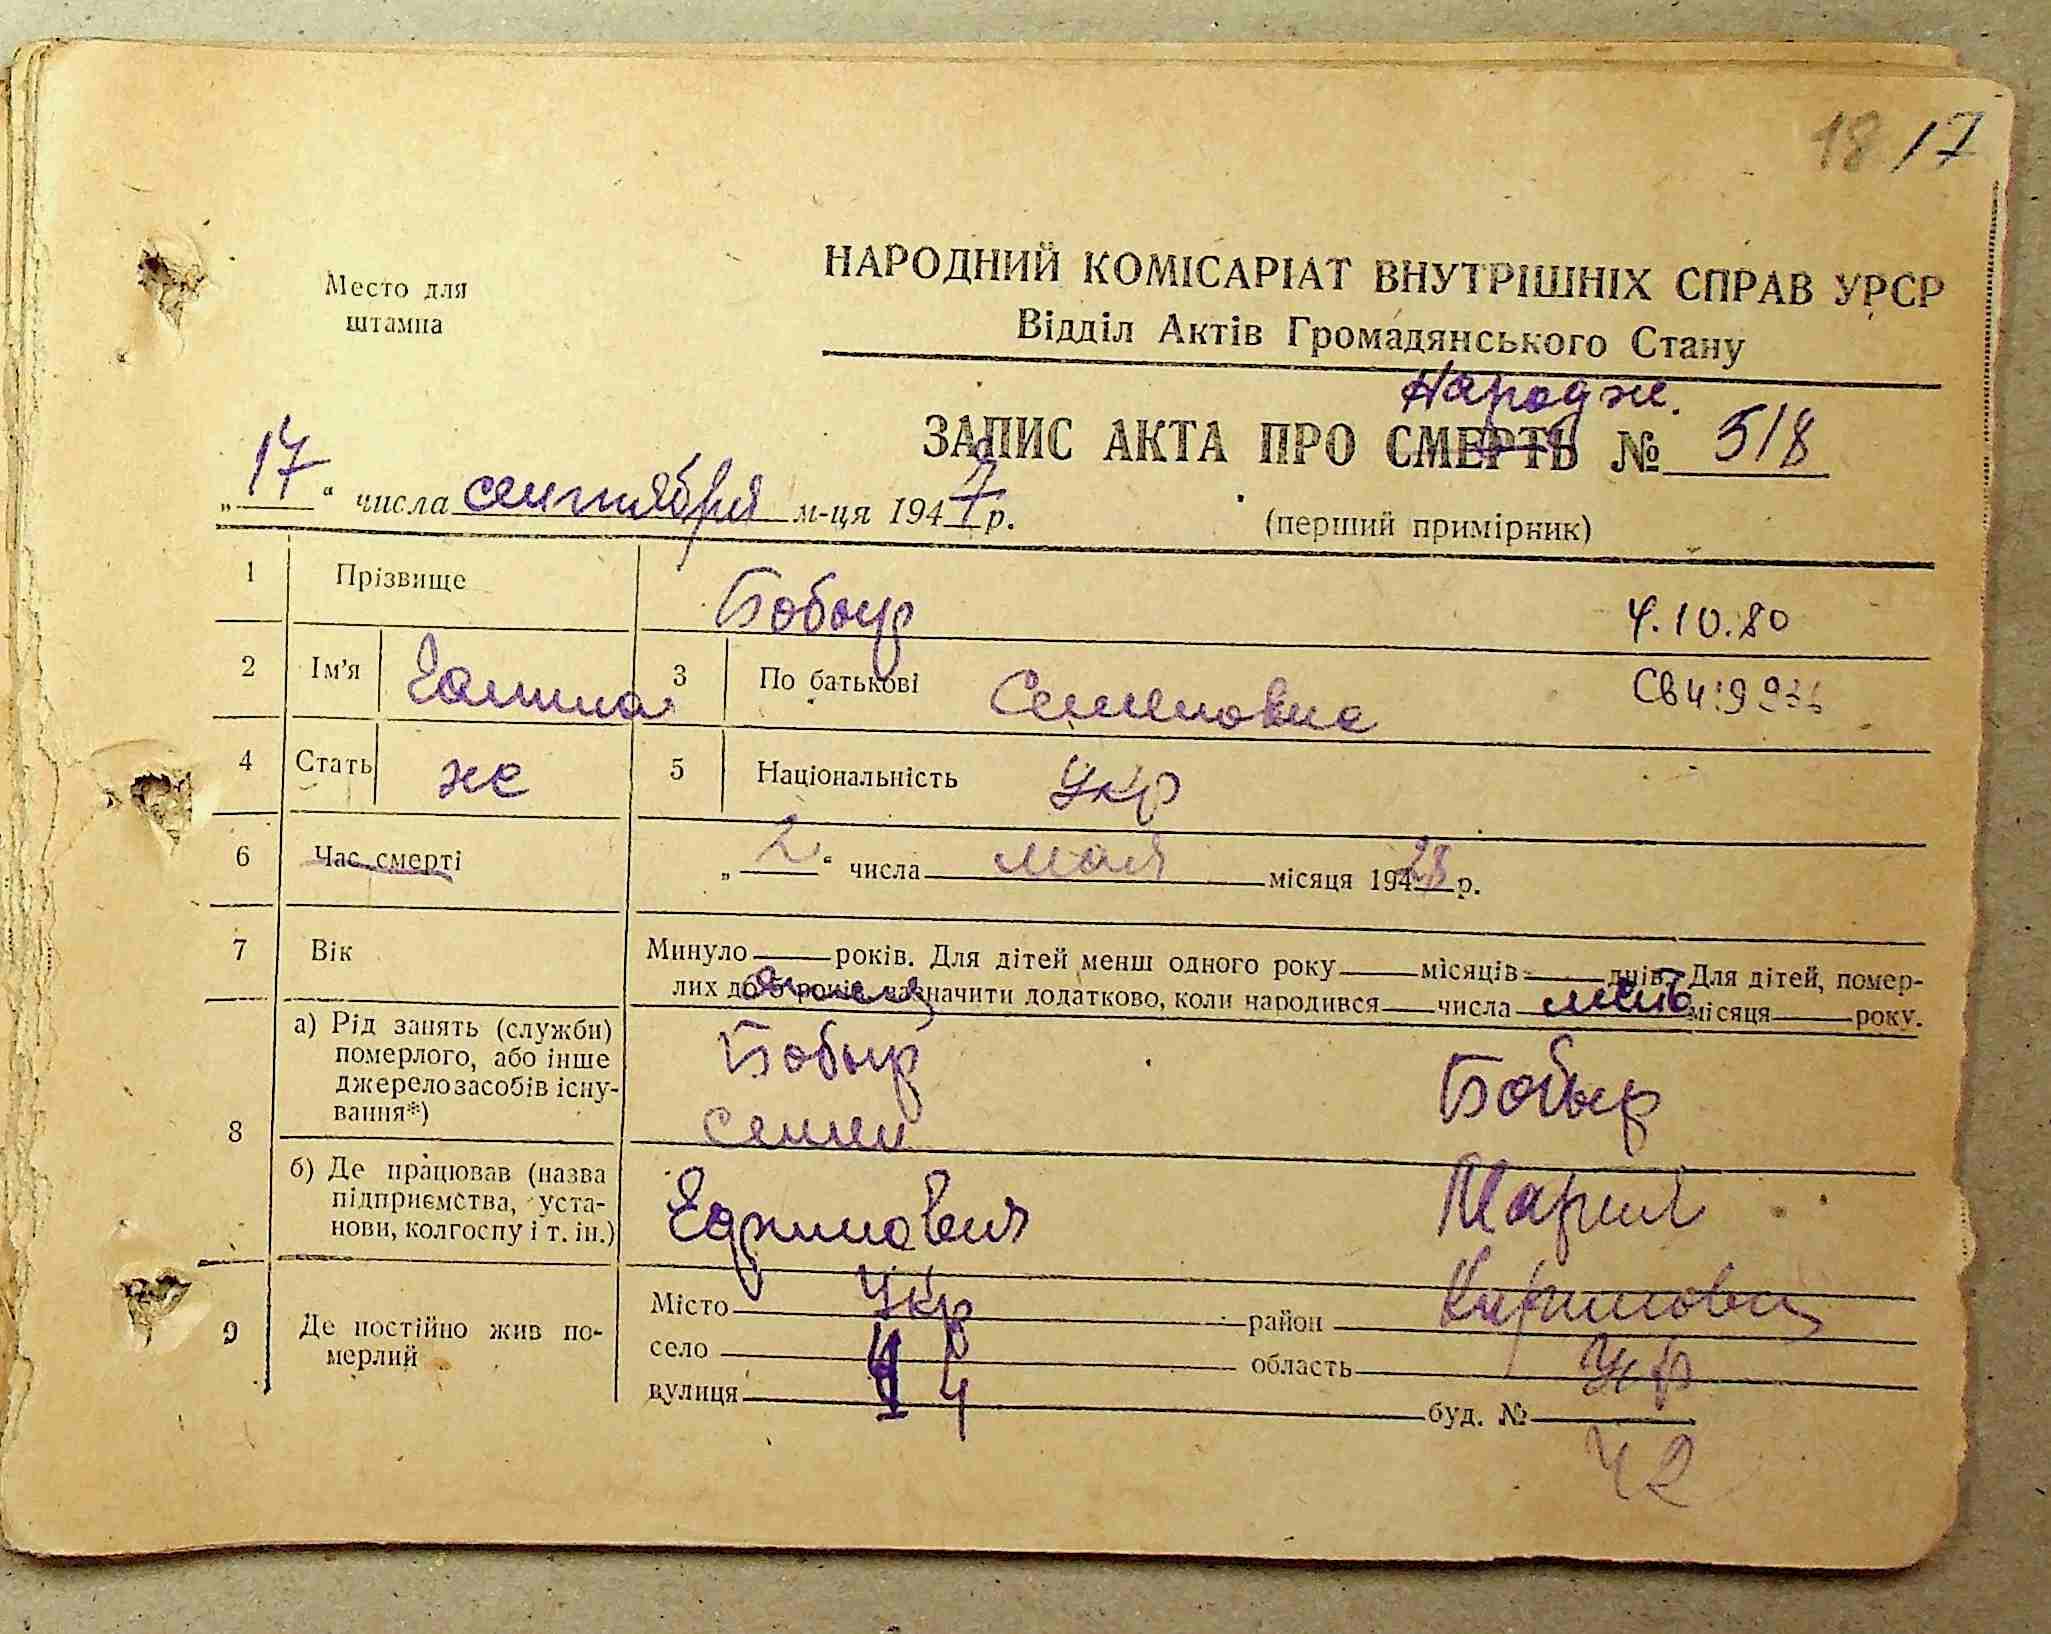 18 17
Место для
штампа
НАРОДНИЙ КОМІСАРІАТ ВНУТРІШНІХ СПРАВ УРСР
Відділ Актів Громадянського Стану
Народже.
ЗАПИС АКТА ПРО СМЕРТЬ № 518
„17“ числа сентября м-ця 1947 р.
(перший примірник)
1 Прізвище Бобыр 4.10.80
2 Ім'я Галина 3 По батькові Семеновна
4 Стать же 5 Національність Укр
6 Час смерті „2“ числа мая місяця 194 28 р.
7 Вік Минуло років. Для дітей менш одного року місяців днів. Для дітей, помер-
лих до 5 років зазначити додатково, коли народився числа мать місяця року.
8 а) Рід занять (служби)
померлого, або інше
джерело засобів існу-
вання*)
Бобыр Бобыр
Семен
б) Де працював (назва
підприємства, уста-
нови, колгоспу і т. ін.)
Мария
9 Де постійно жив по-
мерлий
Місто Укр район
село область Укр
вулиця 44 буд. №
42